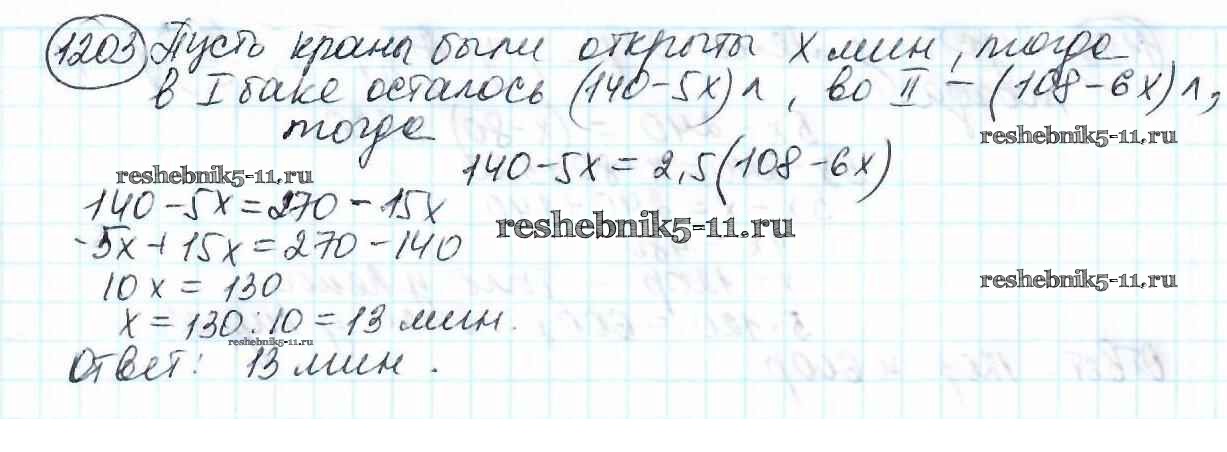 1203 Пусть краны были открыты x мин, тогда
в I баке осталось (140-5x) л, во II - (108-6x) л,
тогда
reshebnik5-11.ru
140-5x = 2,5(108-6x)
reshebnik5-11.ru
140-5x=270-15x
reshebnik5-11.ru
-5x+15x=270-140
10x = 130
reshebnik5-11.ru
x = 130:10 = 13 мин.
reshebnik5-11.ru
Ответ: 13 мин.